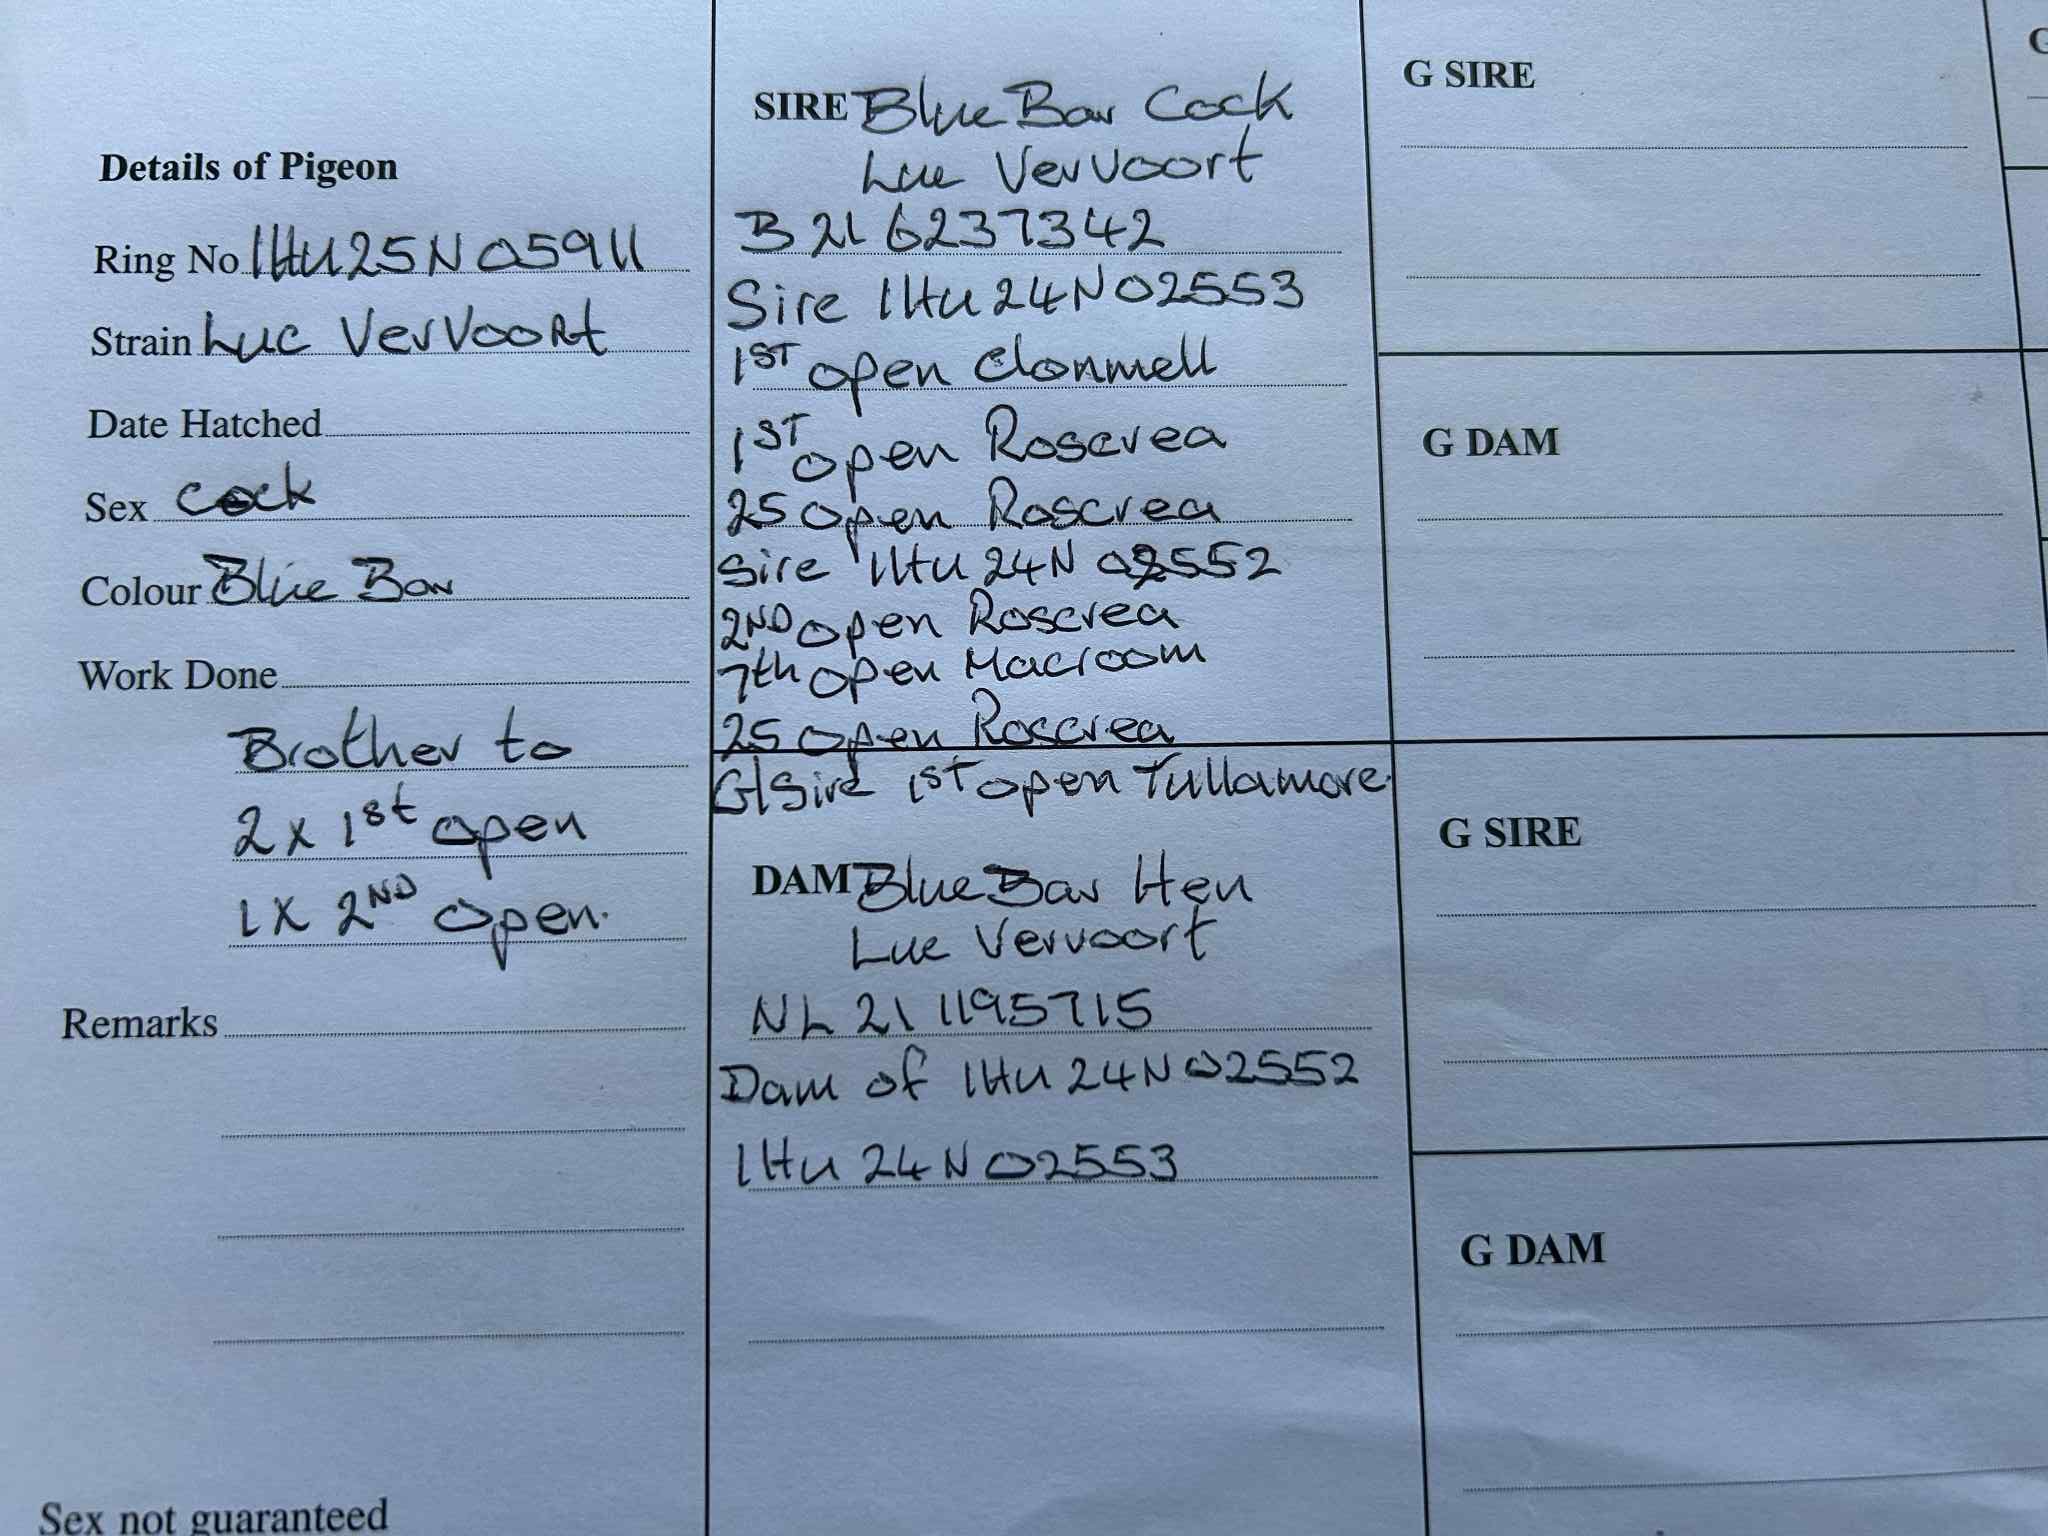 Details of Pigeon
Ring No IHU25N05911
Strain Luc VerVoort
Date Hatched
Sex Cock
Colour Blue Bar
Work Done
Brother to
2 x 1st open
1 X 2ND open.
Remarks
Sex not guaranteed
SIRE Blue Bar Cock
Luc VerVoort
B 21 6237342
Sire IHU 24N02553
1ST open Clonmell
1ST open Roscrea
25 open Roscrea
Sire IHU 24N 02552
2ND open Roscrea
7th open Macroom
25 open Roscrea
G/Sire 1ST open Tullamore.
DAM Blue Bar Hen
Luc Vervoort
NL 21 1195715
Dam of IHU 24N02552
IHU 24N02553
G SIRE
G DAM
G SIRE
G DAM
G